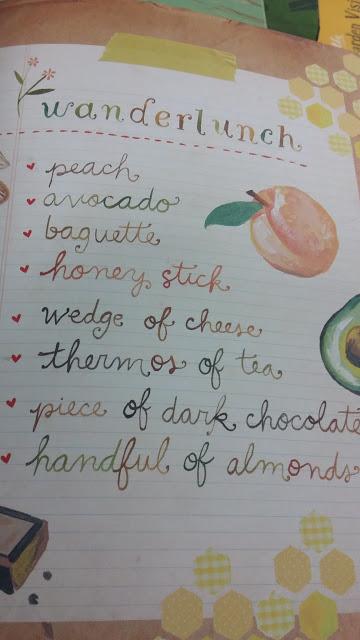 wanderlunch
peach
avocado
baguette
honey stick
wedge of cheese
thermos of tea
piece of dark chocolate
handful of almonds